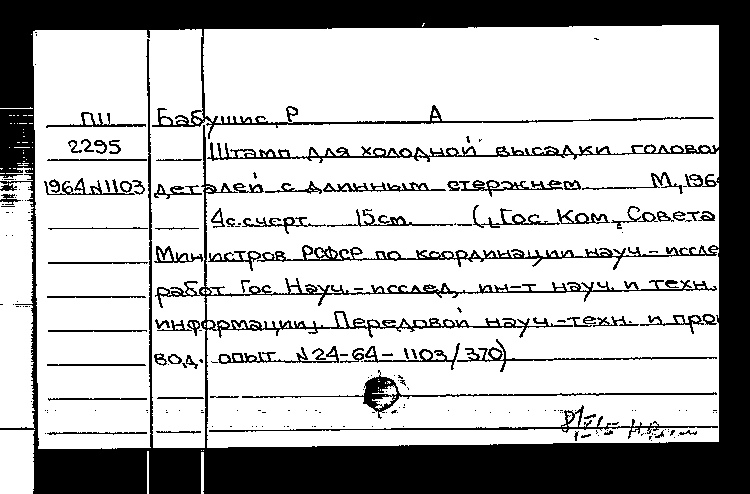 ПШ Бабушис, Р А
2295 Штамп для холодной высадки головок
1964 N1103 деталей с длинным стержнем М., 196
4с.счерт. 15см. (Гос. Ком. Совета
Министров РСФСР по координации науч.-иссле
работ Гос. Науч.-исслед. ин-т науч. и техн.
информации. Передовой науч.-техн. и про
вод. опыт. N24-64-1103/370)